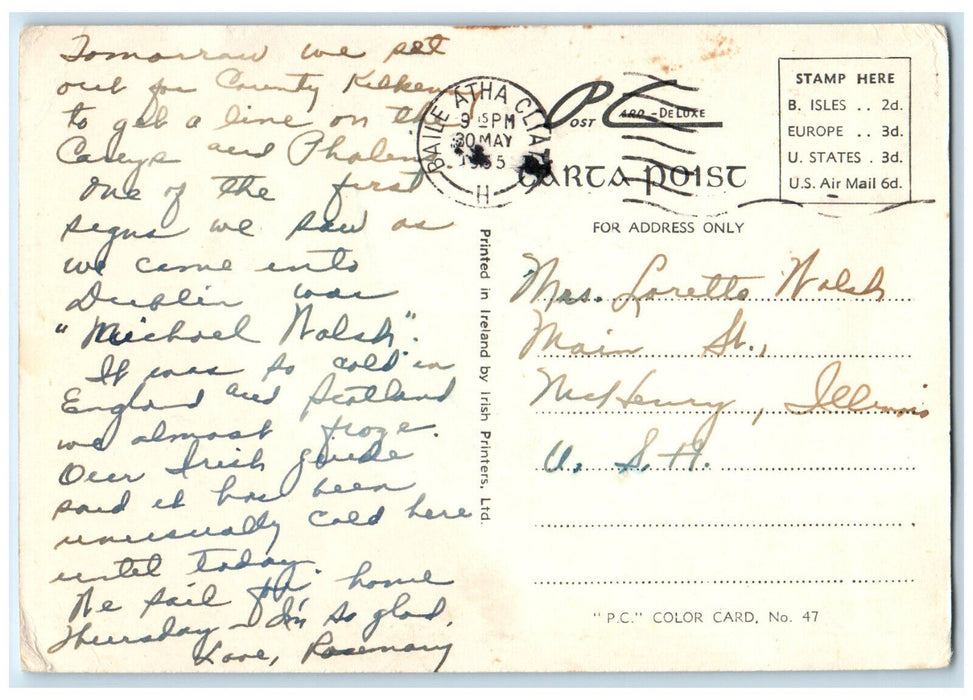 Tomorrow we set
out for County Kilkenny
to get a line on the
Caseys and Phalens
One of the first
signs we saw as
we came into
Dublin was
"Michael Walsh".
It was so cold in
England and Scotland
we almost froze.
Our Irish guide
said it has been
unusually cold here
until today.
We sail for home
Thursday - I'm so glad,
Love, Rosemary
BAILE ÁTHA CLIATH
9 15 PM
30 MAY
1955
H
POST CARD - DE LUXE
CARTA POIST
STAMP HERE
B. ISLES .. 2d.
EUROPE .. 3d.
U. STATES . 3d.
U.S. Air Mail 6d.
FOR ADDRESS ONLY
Mrs. Loretto Walsh
Main St.,
McHenry, Illinois
U. S. A.
Printed in Ireland by Irish Printers, Ltd.
"P.C." COLOR CARD, No. 47